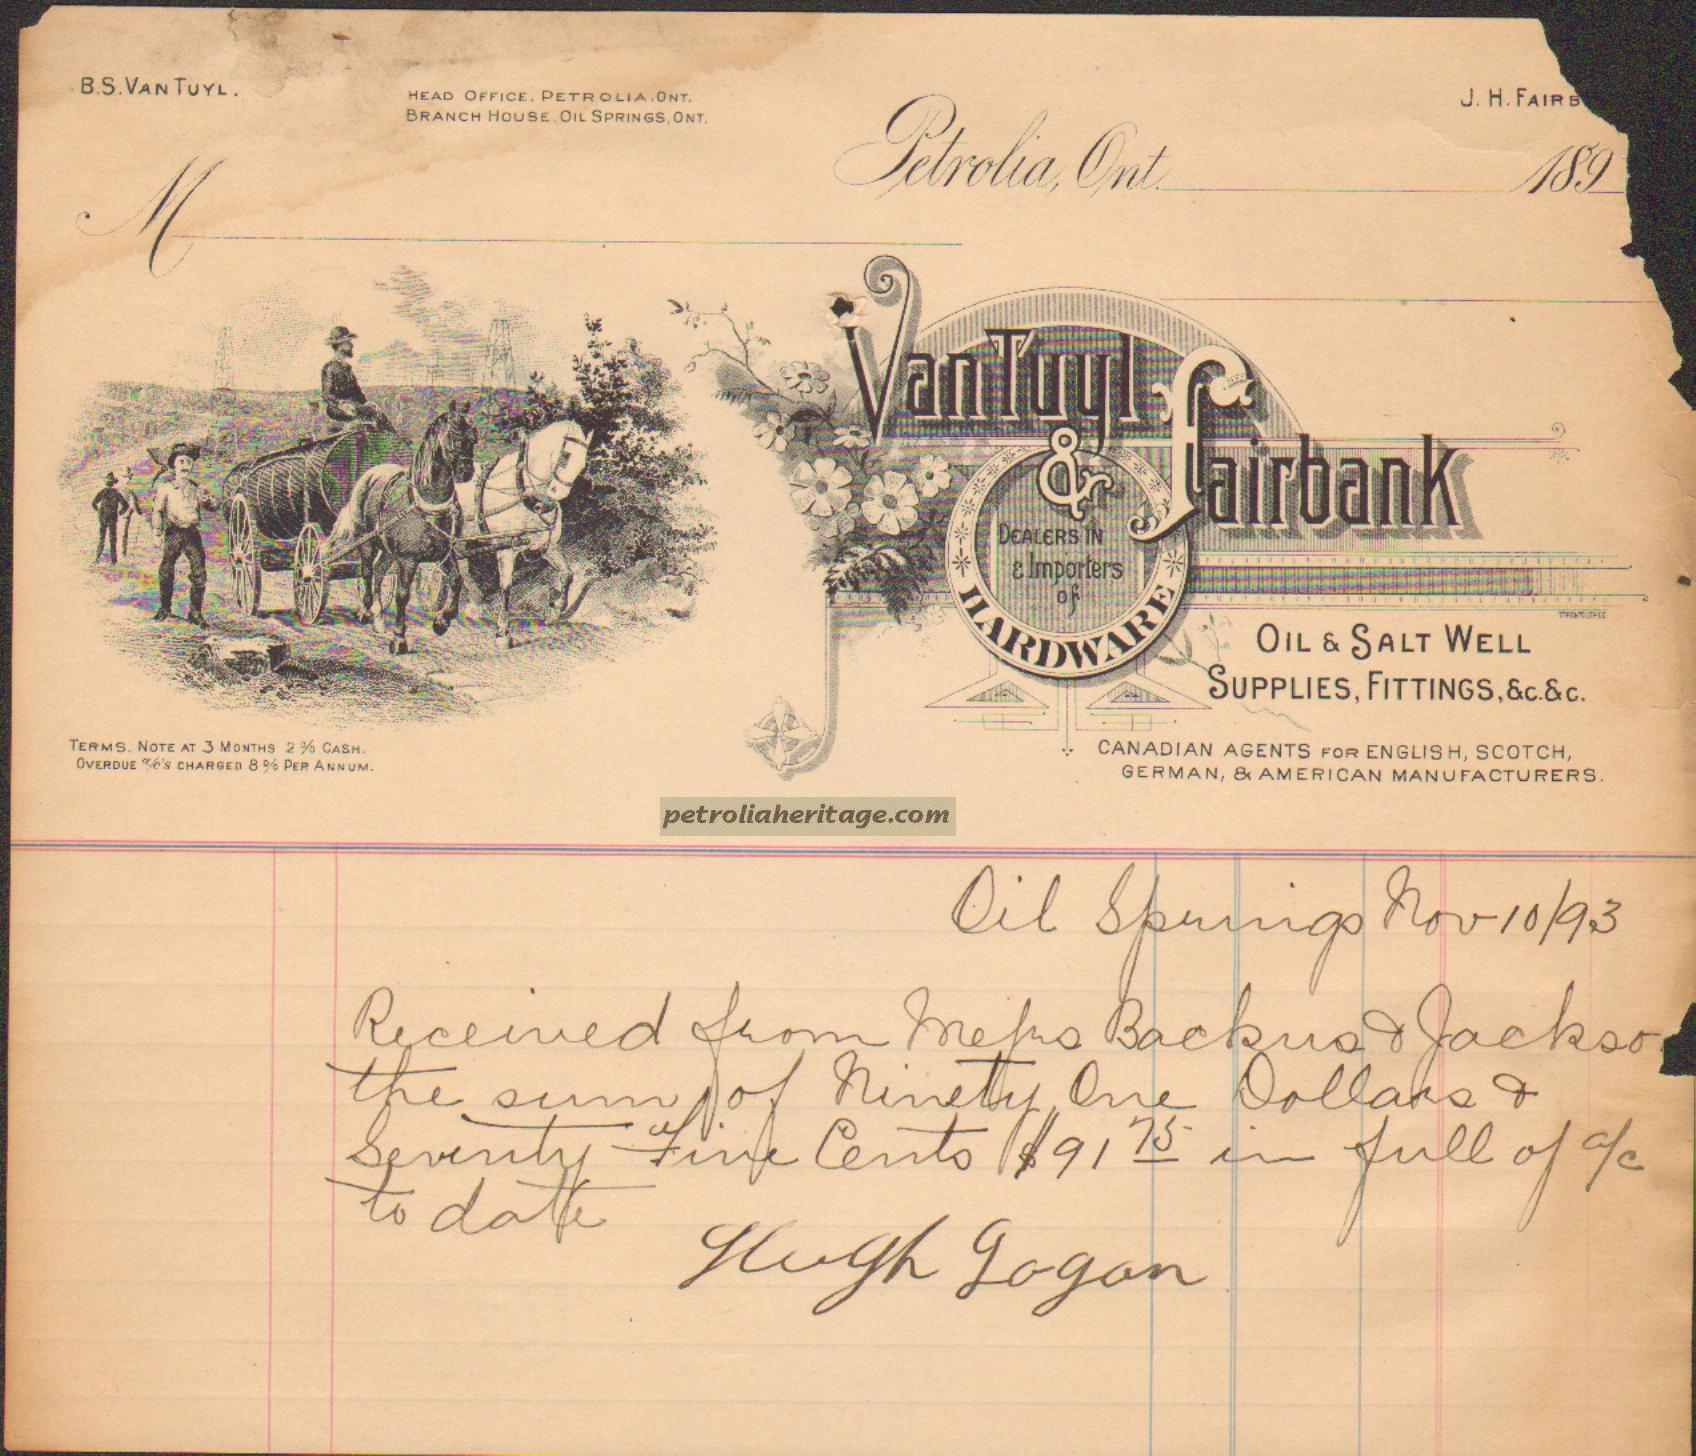 B.S. VAN TUYL.
HEAD OFFICE, PETROLIA, ONT.
BRANCH HOUSE, OIL SPRINGS, ONT.
J. H. FAIRB
Petrolia, Ont. 189
M
Van Tuyl
& Fairbank
DEALERS IN
& Importers
of
HARDWARE
OIL & SALT WELL
SUPPLIES, FITTINGS, &c. &c.
TERMS. NOTE AT 3 MONTHS 2 % CASH.
OVERDUE a/c's CHARGED 8 % PER ANNUM.
CANADIAN AGENTS FOR ENGLISH, SCOTCH,
GERMAN, & AMERICAN MANUFACTURERS.
petroliaheritage.com
Oil Springs Nov 10/93
Received from Messrs Backus & Jackso
the sum of Ninety One Dollars &
Seventy Five Cents $91 75 in full of a/c
to date
Hugh Gogan